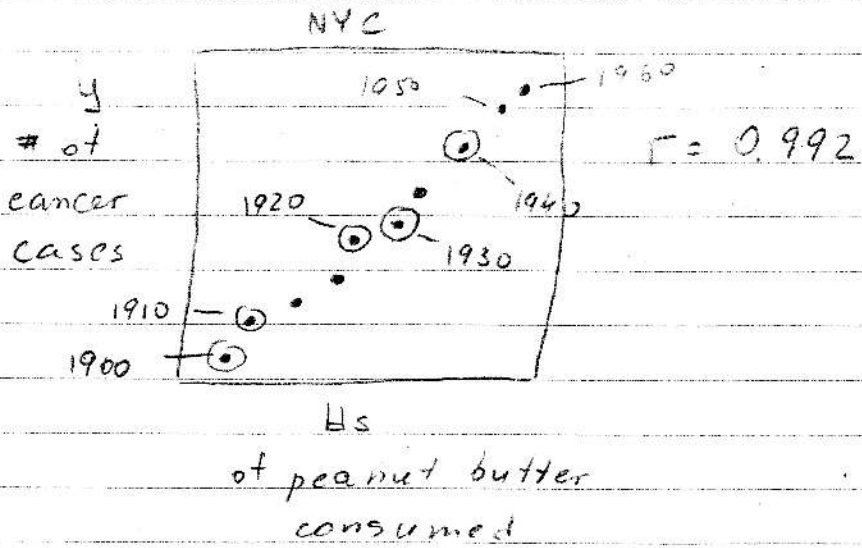 NYC
y
# of
cancer
cases
1950
1960
r = 0.992
1920
1940
1930
1910
1900
lbs
of peanut butter
consumed